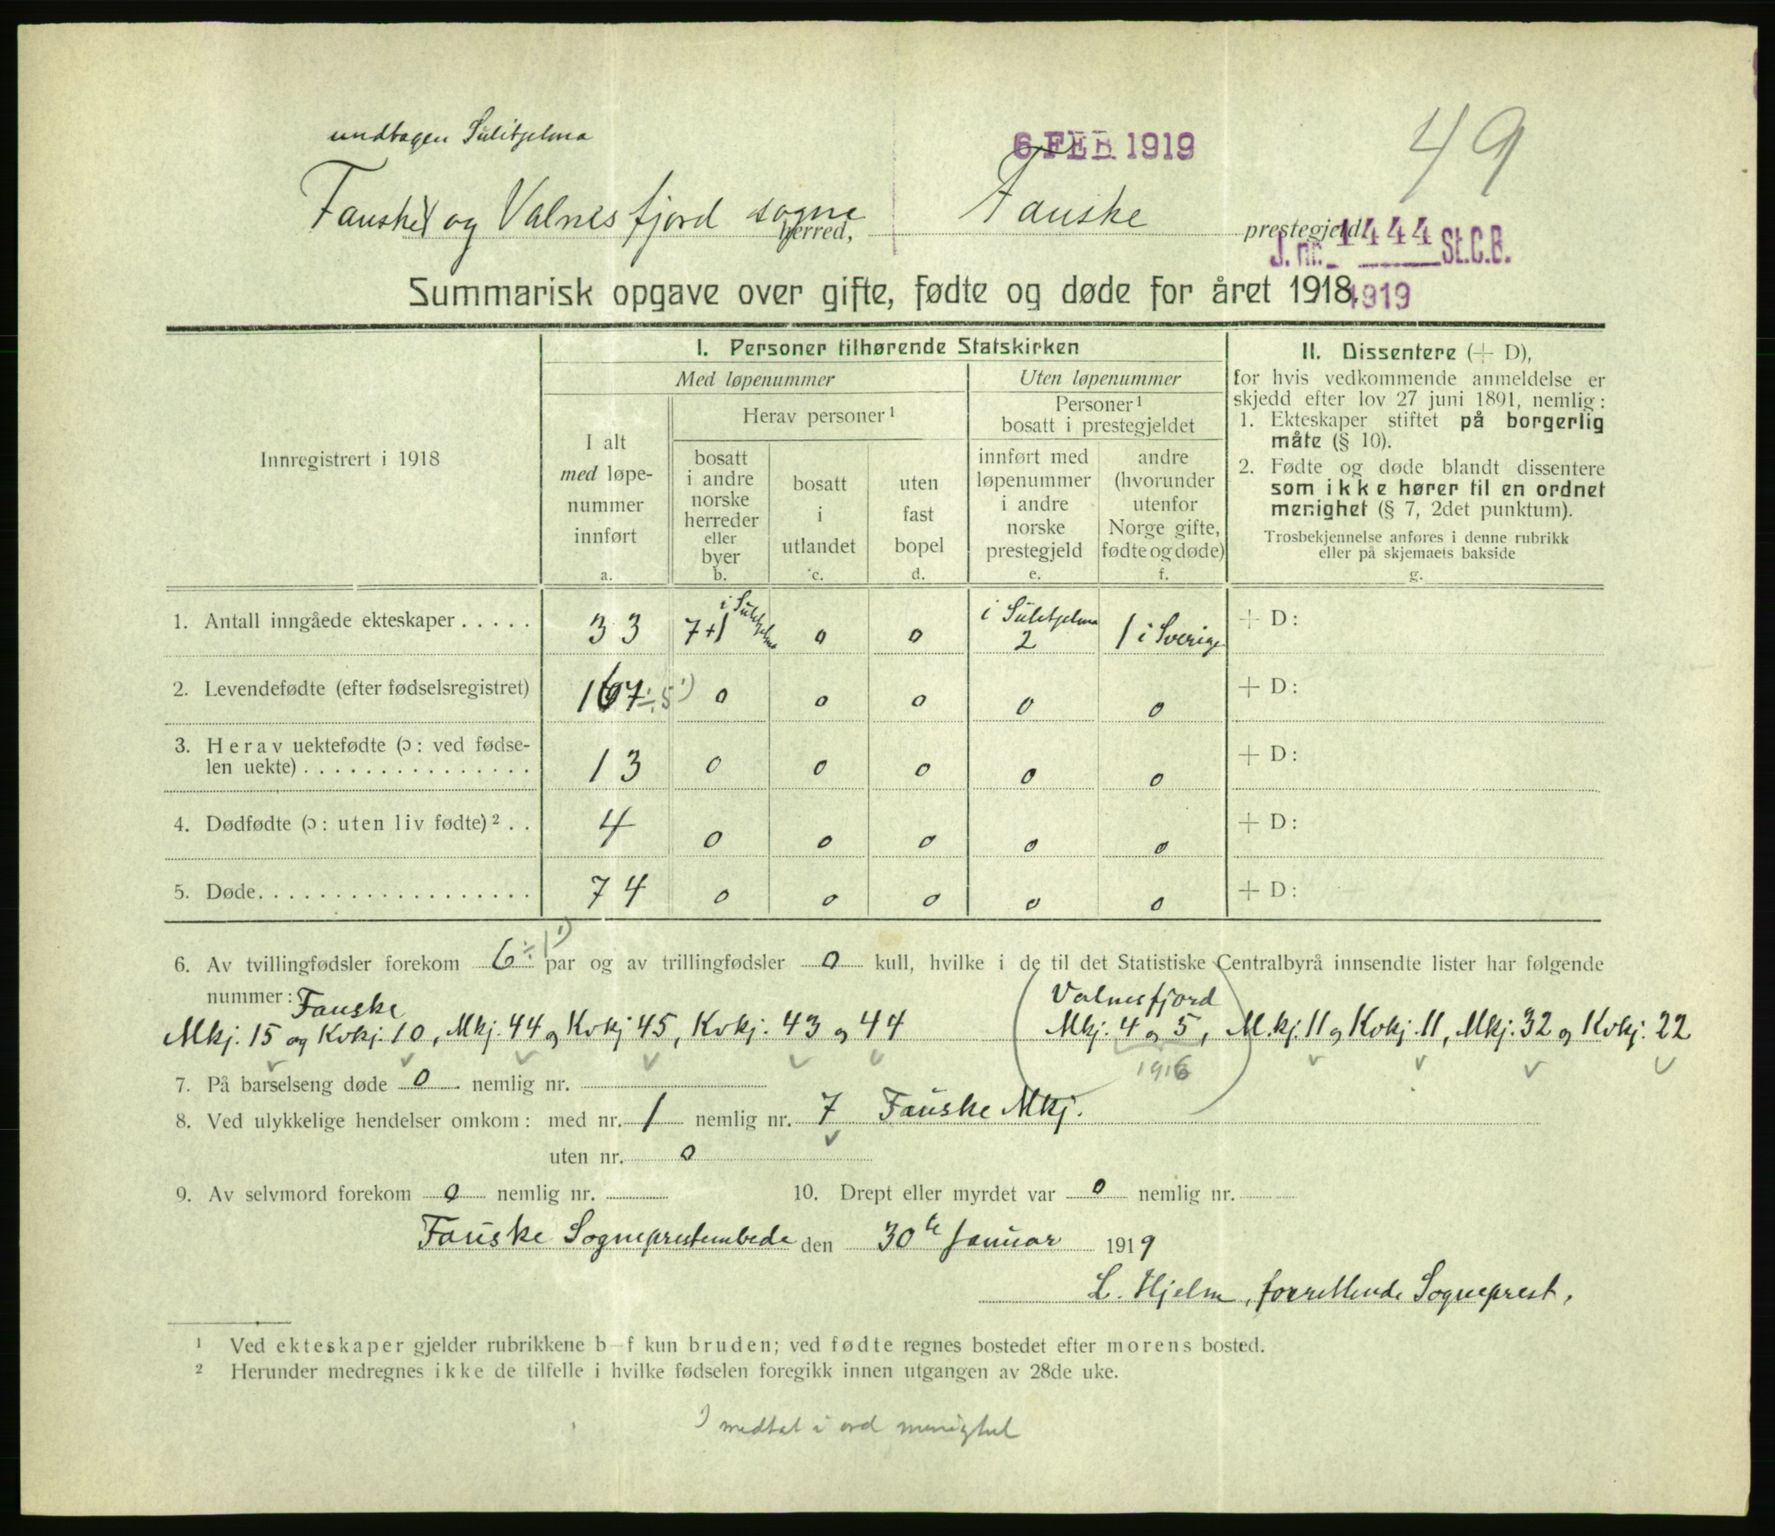 undtagen Sulitjelma
6 FEB 1919
49
Fauske og Valnesfjord sogne herred, Fauske prestegjeld.
J. nr. 1444 St.C.B.
Summarisk opgave over gifte, fødte og døde for året 1918.
1919
Innregistrert i 1918
I. Personer tilhørende Statskirken
Med løpenummer
Uten løpenummer
I alt
med løpe-
nummer
innført
a.
Herav personer¹
bosatt
i andre
norske
herreder
eller
byer
b.
bosatt
i
utlandet
c.
uten
fast
bopel
d.
Personer¹
bosatt i prestegjeldet
innført med
løpenummer
i andre
norske
prestegjeld
e.
andre
(hvorunder
utenfor
Norge gifte,
fødte og døde)
f.
II. Dissentere (+ D),
for hvis vedkommende anmeldelse er
skjedd efter lov 27 juni 1891, nemlig:
1. Ekteskaper stiftet på borgerlig
måte (§ 10).
2. Fødte og døde blandt dissentere
som ikke hører til en ordnet
menighet (§ 7, 2det punktum).
Trosbekjennelse anføres i denne rubrikk
eller på skjemaets bakside
g.
1. Antall inngåede ekteskaper..... 33 7+1 i Sulitjelma 0 0 i Sulitjelma 2 1 i Sverige + D:
2. Levendefødte (efter fødselsregistret) 167 ÷ 5 ¹) 0 0 0 0 0 + D:
3. Herav uektefødte (ɔ: ved fødse-
len uekte)............... 13 0 0 0 0 0 + D:
4. Dødfødte (ɔ: uten liv fødte)².. 4 0 0 0 0 0 + D:
5. Døde.................. 74 0 0 0 0 0 + D:
6. Av tvillingfødsler forekom 6 ÷ 1 ¹) par og av trillingfødsler 0 kull, hvilke i de til det Statistiske Centralbyrå innsendte lister har følgende
nummer: Fauske Valnesfjord
Mkj. 15 og Kvkj. 10, Mkj. 44 og Kvkj 45, Kvkj. 43 og 44 Mkj. 4 og 5, M.kj. 11 og Kvkj. 11, Mkj. 32 og Kvkj. 22
1916
7. På barselseng døde 0 nemlig nr.
8. Ved ulykkelige hendelser omkom: med nr. 1 nemlig nr. 7 Fauske Mkj.
uten nr. 0
9. Av selvmord forekom 0 nemlig nr. 10. Drept eller myrdet var 0 nemlig nr.
Fauske Sogneprestembede den 30te Januar 1919
L. Hjelm, forrettende Sogneprest.
¹ Ved ekteskaper gjelder rubrikkene b–f kun bruden; ved fødte regnes bostedet efter morens bosted.
² Herunder medregnes ikke de tilfelle i hvilke fødselen foregikk innen utgangen av 28de uke.
medtat i ord menighet